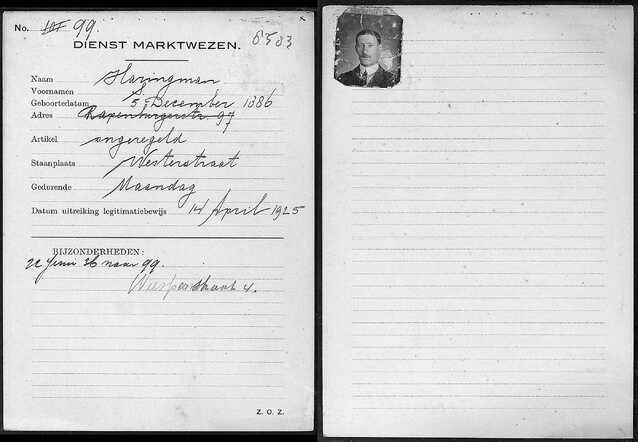 No. 101 99.
8583
DIENST MARKTWEZEN.
Naam Haringman
Voornamen S.
Geboortedatum 5 December 1886
Adres Rapenburgerstr. 97
Artikel ongeregeld
Staanplaats Westerstraat
Gedurende Maandag
Datum uitreiking legitimatiebewijs 14 April 1925
BIJZONDERHEDEN:
22 36 naar 99.
Weesperstraat 4.
Z. O. Z.